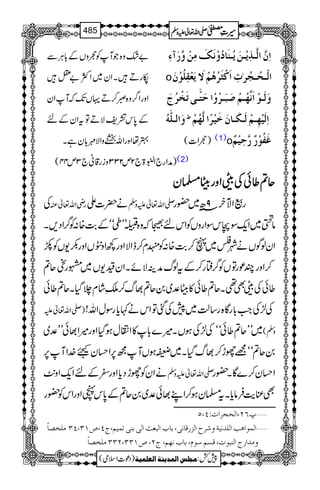 سیرتِ مصطفیٰ صلی اللہ تعالیٰ علیہ وسلم 485
اِنَّ الَّذِیْنَ یُنَادُوْنَکَ مِنْ وَّرَآءِ
الْحُجُرٰتِ اَکْثَرُھُمْ لَا یَعْقِلُوْنَ o
وَلَوْ اَنَّھُمْ صَبَرُوْا حَتّٰی تَخْرُجَ
اِلَیْھِمْ لَکَانَ خَیْرًا لَّھُمْ ط وَاللّٰہُ
غَفُوْرٌ رَّحِیْمٌ o (1) (حجرات)
بے شک وہ جو آپ کو حجروں کے باہر سے
پکارتے ہیں۔ ان میں اکثر بے عقل ہیں
اور اگر وہ صبر کرتے یہاں تک کہ آپ ان
کے پاس تشریف لاتے تو یہ ان کے لئے
بہتر تھا اور اللہ بخشنے والا مہربان ہے۔
(2) (مدارج النبوۃ ج۲ ص۳۳۲ و زرقانی ج۳ ص۴۴)
حاتم طائی کی بیٹی اور بیٹا مسلمان
ربیع الآخر ۹ھ میں حضور صلی اللہ تعالیٰ علیہ وسلم نے حضرت علی رضی اللہ تعالیٰ عنہ کی
ماتحتی میں ایک سو پچاس سواروں کو اس لئے بھیجا کہ وہ قبیلہ ’’طی‘‘ کے بت خانہ کو گرا دیں۔
ان لوگوں نے شہر فلس میں پہنچ کر بت خانہ کو منہدم کر ڈالا اور کچھ اونٹوں اور بکریوں کو پکڑ
کر اور چند عورتوں کو گرفتار کر کے یہ لوگ مدینہ لائے۔ ان قیدیوں میں مشہور سخی حاتم
طائی کی بیٹی بھی تھی۔ حاتم طائی کا بیٹا عدی بن حاتم بھاگ کر ملک شام چلا گیا۔ حاتم طائی
کی لڑکی جب بارگاہ رسالت میں پیش کی گئی تو اس نے کہا یا رسول اللہ! (صلی اللہ تعالیٰ علیہ
وسلم) میں ’’حاتم طائی‘‘ کی لڑکی ہوں۔ میرے باپ کا انتقال ہو گیا اور میرا بھائی ’’عدی
بن حاتم‘‘ مجھے چھوڑ کر بھاگ گیا۔ میں ضعیفہ ہوں آپ مجھ پر احسان کیجئے خدا آپ پر
احسان کرے گا۔ حضور صلی اللہ تعالیٰ علیہ وسلم نے ان کو چھوڑ دیا اور سفر کے لئے ایک اونٹ
بھی عنایت فرمایا۔ یہ مسلمان ہو کر اپنے بھائی عدی بن حاتم کے پاس پہنچی اور اس کو حضور
......پ۲۶، الحجرات: ۴،۵
......المواھب اللدنیۃ وشرح الزرقانی، باب البعث الی بنی تمیم، ج۴، ص۳۱،۳۴ ملخصاً
ومدارج النبوت، قسم سوم، باب نھم، ج۲، ص۳۳۱، ۳۳۲ ملخصاً
پیش کش: مجلس المدینۃ العلمیۃ (دعوتِ اسلامی)